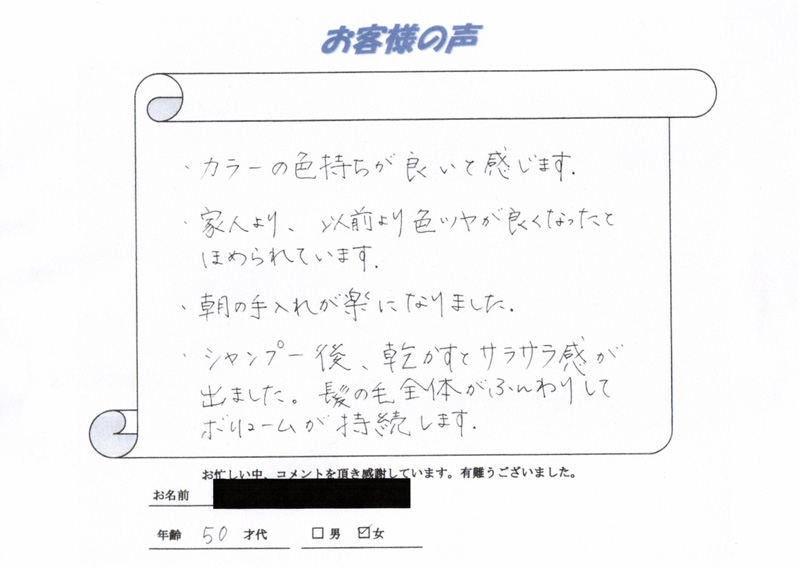 お客様の声
・カラーの色持ちが良いと感じます.
・家人より、以前より色ツヤが良くなったと
ほめられています.
・朝の手入れが楽になりました.
・シャンプー後、乾かすとサラサラ感が
出ました。髪の毛全体がふんわりして
ボリュームが持続します.
お忙しい中、コメントを頂き感謝しています。有難うございました。
お名前
年齢 50 才代 □男 ☑女